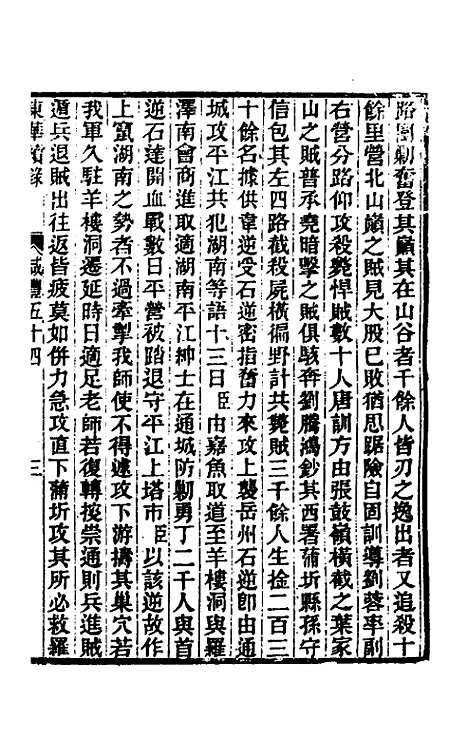 路圍剿奮登其巔其在山谷者千餘人皆刃之逸出者又追殺十
餘里營北山巔之賊見大股已敗猶思踞險自固訓導劉蓉率副
右營分路仰攻殺斃悍賊數十人唐訓方由張鼓嶺橫截之葉家
山之賊普承堯暗擊之賊俱駭奔劉騰鴻鈔其西署蒲圻縣孫守
信包其左四路截殺屍橫徧野計共斃賊三千餘人生擒二百三
十餘名據供韋逆受石逆密指奮力來攻上襲岳州石逆卽由通
城攻平江共犯湖南等語十三日臣由嘉魚取道至羊樓洞與羅
澤南會商進取適湖南平江紳士在通城防剿勇丁二千人與首
逆石達開血戰數日平營被踏退守平江上塔市臣以該逆故作
上竄湖南之勢者不過牽掣我師使不得遽攻下游擣其巢穴若
我軍久駐羊樓洞遷延時日適足老師若復轉按崇通則兵進賊
遁兵退賊出往返皆疲莫如併力急攻直下蒲圻攻其所必救羅
東華續錄 咸豐五十四 三